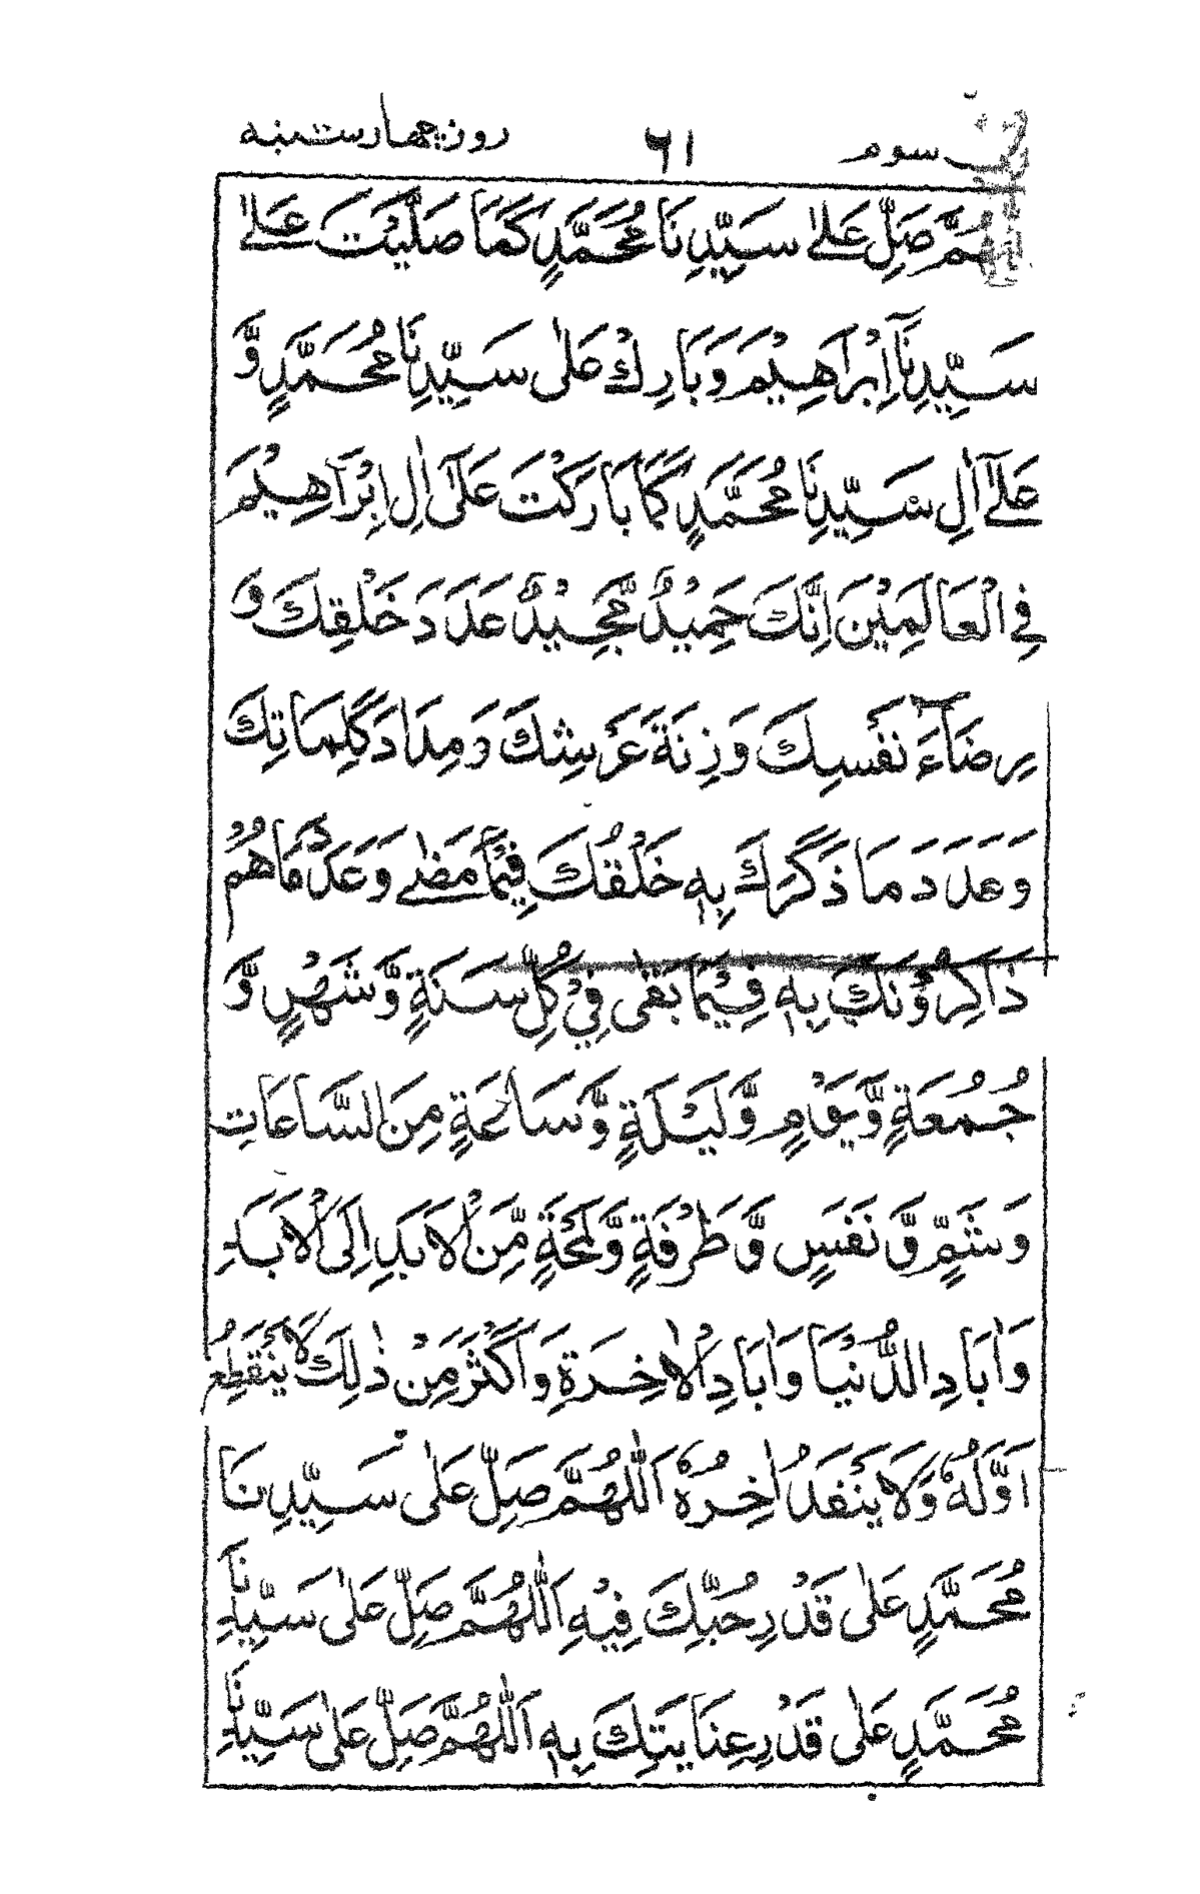 سوم ٦١ روز چهار شنبه
صَلِّ عَلٰى سَيِّدِنَا مُحَمَّدٍ كَمَا صَلَّيْتَ عَلٰى
سَيِّدِنَآ اِبْرَاهِيْمَ وَبَارِكْ عَلٰى سَيِّدِنَا مُحَمَّدٍ وَّ
عَلٰٓى اٰلِ سَيِّدِنَا مُحَمَّدٍ كَمَا بَارَكْتَ عَلٰٓى اٰلِ اِبْرَاهِيْمَ
فِي الْعَالَمِيْنَ اِنَّكَ حَمِيْدٌ مَّجِيْدٌ عَدَدَ خَلْقِكَ وَ
رِضَآءَ نَفْسِكَ وَزِنَةَ عَرْشِكَ وَمِدَادَ كَلِمَاتِكَ
وَعَدَدَ مَا ذَكَرَكَ بِهٖ خَلْقُكَ فِيْمَا مَضٰى وَعَدَدَ مَا هُمْ
ذَاكِرُوْنَكَ بِهٖ فِيْمَا بَقٰى فِيْ كُلِّ سَنَةٍ وَّشَهْرٍ وَّ
جُمُعَةٍ وَّيَوْمٍ وَّلَيْلَةٍ وَّسَاعَةٍ مِنَ السَّاعَاتِ
وَشَمٍّ وَّنَفَسٍ وَّطَرْفَةٍ وَّلَمْحَةٍ مِّنَ الْاَبَدِ اِلَى الْاَبَدِ
وَاٰبَادِ الدُّنْيَا وَاٰبَادِ الْاٰخِرَةِ وَاَكْثَرَ مِنْ ذٰلِكَ لَا يَنْقَطِعُ
اَوَّلُهٗ وَلَا يَنْفَدُ اٰخِرُهٗ اَللّٰهُمَّ صَلِّ عَلٰى سَيِّدِنَا
مُحَمَّدٍ عَلٰى قَدْرِ حُبِّكَ فِيْهِ اَللّٰهُمَّ صَلِّ عَلٰى سَيِّدِنَا
مُحَمَّدٍ عَلٰى قَدْرِ عِنَايَتِكَ بِهٖ اَللّٰهُمَّ صَلِّ عَلٰى سَيِّدِنَا